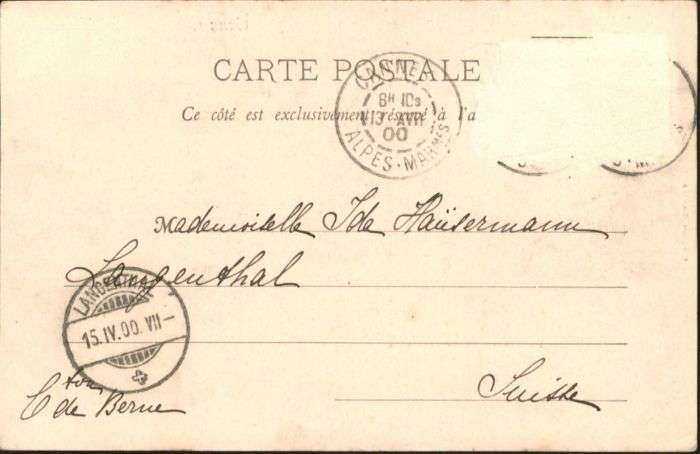 CARTE POSTALE
Ce côté est exclusivement réservé à l'a
CANNES
8H 10s
13 AVR
00
ALPES-MARMES
Mademoiselle Ida Haüsermann
Langenthal
LANGENTHAL
15.IV.00. VII-
Cton de Berne
Suisse